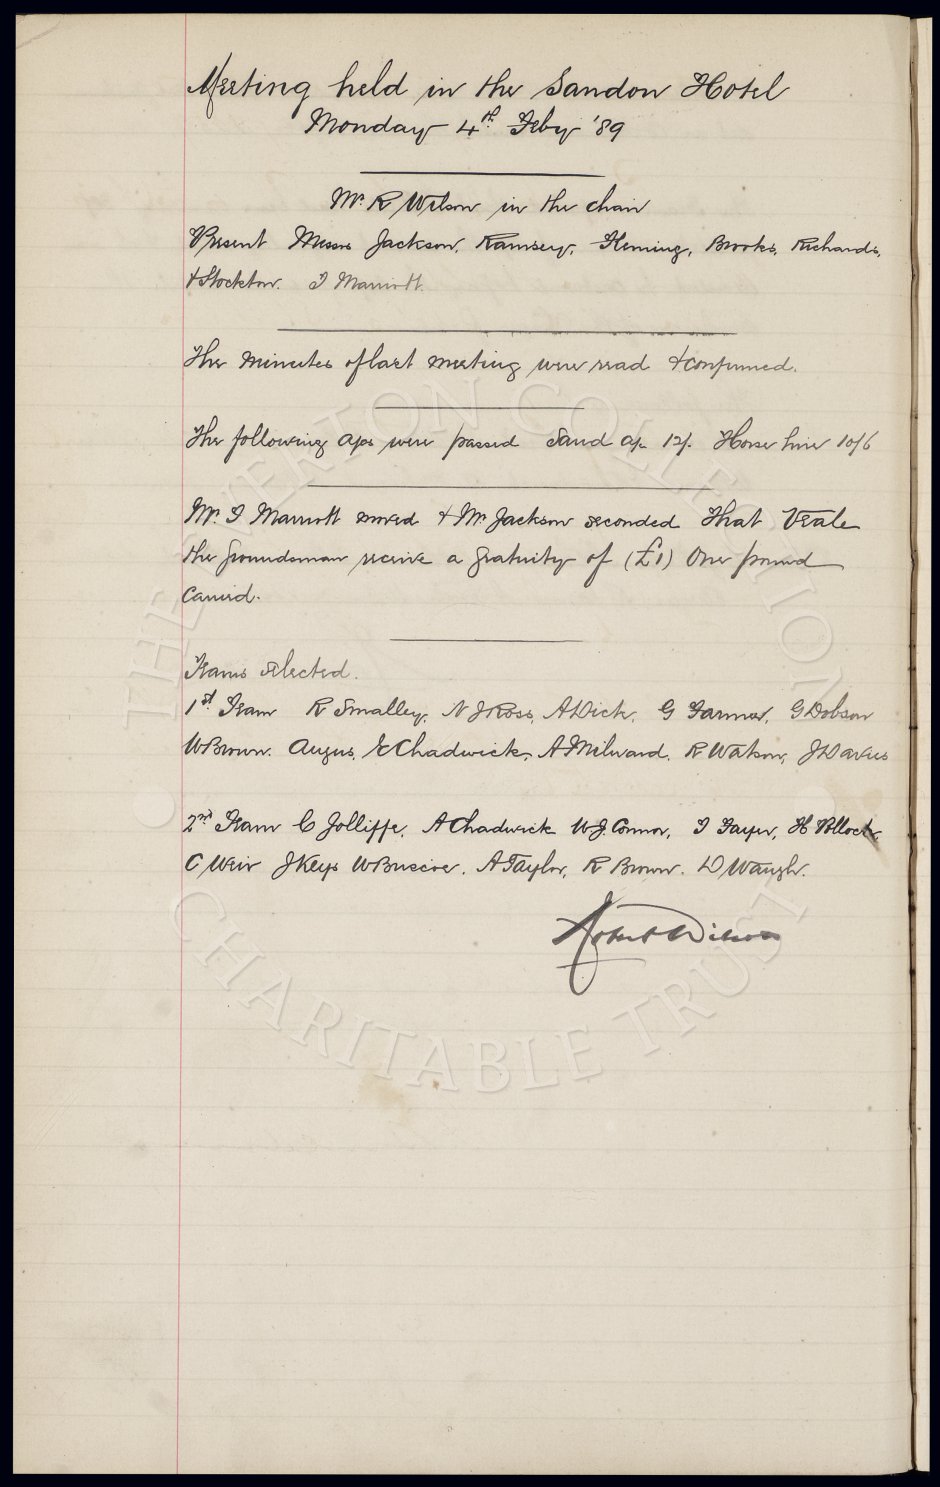 Meeting held in the Sandon Hotel
Monday 4th Feby '89
Mr. R Wilson in the chair
Present Messrs Jackson, Ramsey, Fleming, Brooks, Richards,
& Stockton. T Marriott.
The minutes of last meeting were read & confirmed.
The following a/cs were passed Sand a/c 12/- Horse hire 10/6
Mr. T Marriott moved & Mr Jackson seconded That Veale
the groundsman receive a gratuity of (£1) One pound
carried.
Teams selected.
1st Team R Smalley, N J Ross, A Dick, G Farmer, G Dobson
W Brown. Angus, E Chadwick, A Milward, R Watson, J Davies
2nd Team C Jolliffe, A Chadwick W.J. Connor, T Fayer, H Pollock,
C Weir J Keys W Briscoe. A Taylor, R Brown. D Waugh.
Robert Wilson
THE EVERTON COLLECTION
CHARITABLE TRUST